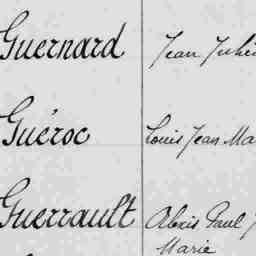 Guernard Jean Julie
Guéroc Louis Jean Ma
Guerrault Alexis Paul
Marie